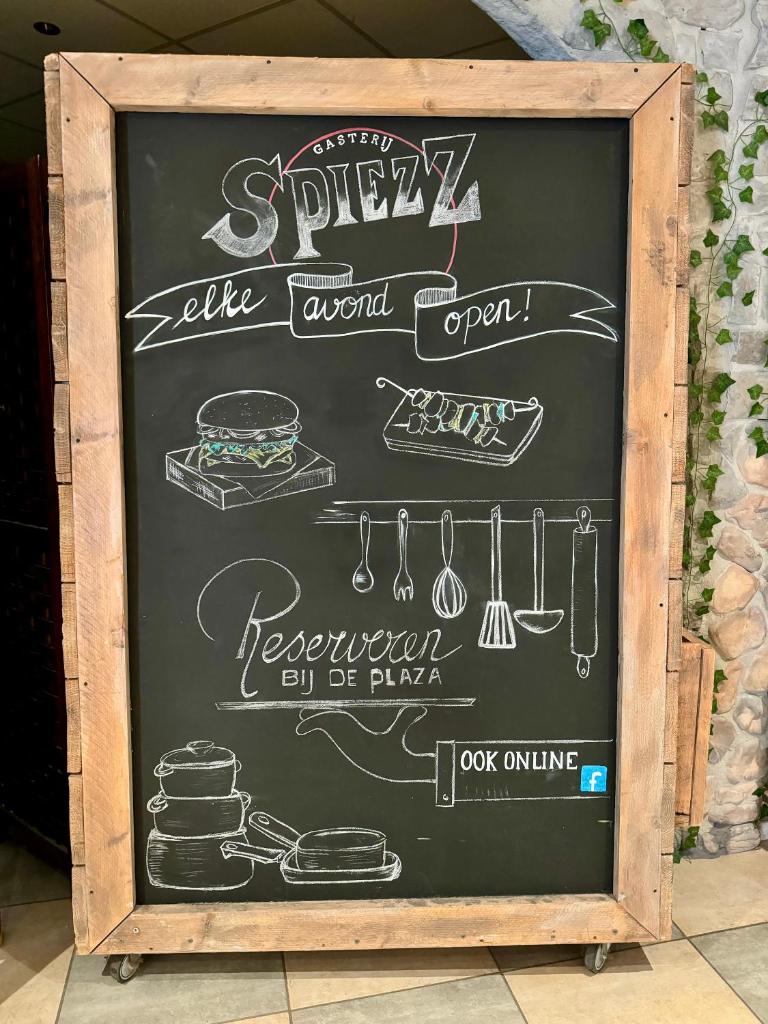 GASTERIJ
SPIEZZ
elke avond open!
Reserveren
BIJ DE PLAZA
OOK ONLINE f